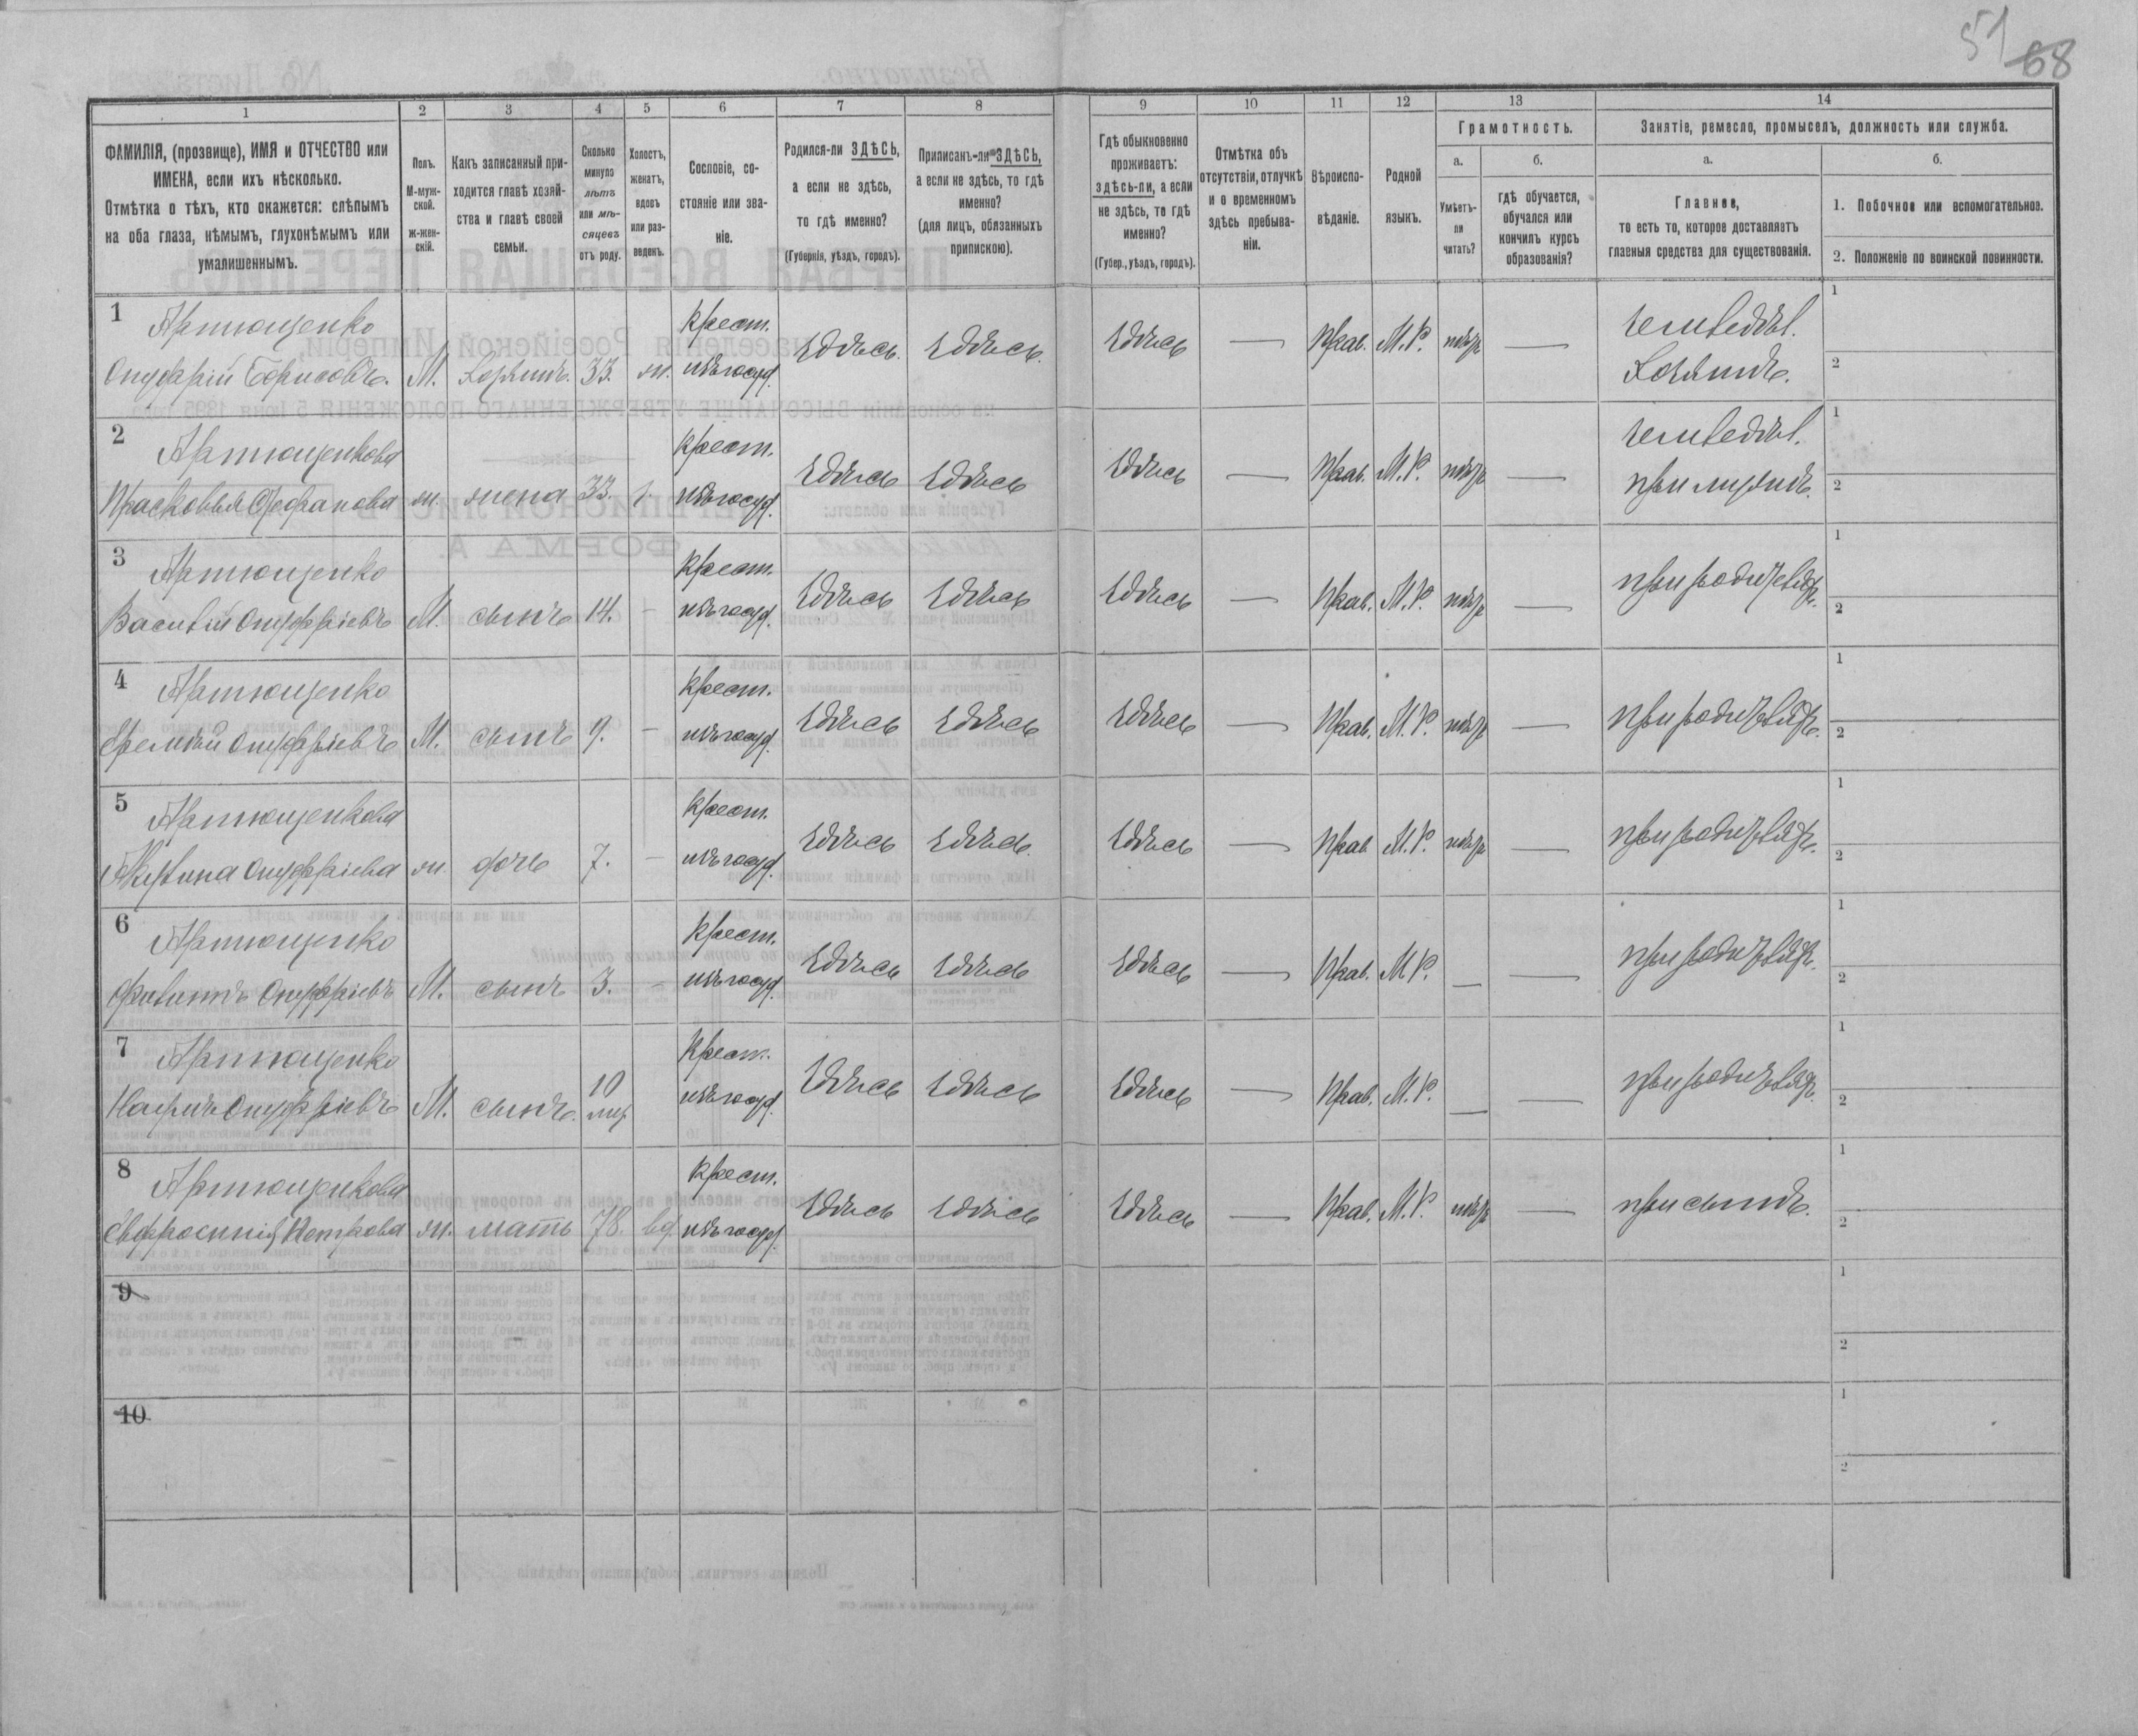 51 68
1 2 3 4 5 6 7 8 9 10 11 12 13 14
ФАМИЛІЯ, (прозвище), ИМЯ и ОТЧЕСТВО или
ИМЕНА, если ихъ нѣсколько.
Отмѣтка о тѣхъ, кто окажется: слѣпымъ
на оба глаза, нѣмымъ, глухонѣмымъ или
умалишеннымъ.
Полъ.
М-муж-
ской.
ж-жен-
скій.
Какъ записанный при-
ходится главѣ хозяй-
ства и главѣ своей
семьи.
Сколько
минуло
лѣтъ
или мѣ-
сяцевъ
отъ роду.
Холостъ,
женатъ,
вдовъ
или раз-
веденъ.
Сословіе, со-
стояніе или зва-
ніе.
Родился-ли ЗДѢСЬ,
а если не здѣсь,
то гдѣ именно?
(Губернія, уѣздъ, городъ).
Приписанъ-ли ЗДѢСЬ,
а если не здѣсь, то гдѣ
именно?
(для лицъ, обязанныхъ
припискою).
Гдѣ обыкновенно
проживаетъ:
здѣсь-ли, а если
не здѣсь, то гдѣ
именно?
(Губер., уѣздъ, городъ).
Отмѣтка объ
отсутствіи, отлучкѣ
и о временномъ
здѣсь пребыва-
ніи.
Вѣроиспо-
вѣданіе.
Родной
языкъ.
Грамотность.
а.
Умѣетъ-
ли
читать?
б.
гдѣ обучается,
обучался или
кончилъ курсъ
образованія?
Занятіе, ремесло, промыселъ, должность или служба.
а.
Главное,
то есть то, которое доставляетъ
главныя средства для существованія.
б.
1. Побочное или вспомогательное.
2. Положеніе по воинской повинности.
1 Артющенко Крест. земледѣл. 1
Онуфрій Борисовъ. М. Хозяинъ. 33. ж. изъ госуд. Здѣсь. Здѣсь. Здѣсь — Прав. М.Р. нѣтъ — Хозяинъ. 2
2 Артющенкова Крест. земледѣл. 1
Прасковья ж. жена 33. изъ госуд. Здѣсь Здѣсь Здѣсь — Прав. М.Р. нѣтъ — при мужѣ. 2
3 Артющенко Крест. 1
Василій Онуфріевъ М. сынъ 14. — изъ госуд. Здѣсь Здѣсь Здѣсь — Прав. М.Р. нѣтъ — при родителяхъ. 2
4 Артющенко Крест. 1
Онуфріевъ М. сынъ 9. — изъ госуд. Здѣсь Здѣсь Здѣсь — Прав. М.Р. нѣтъ — при родителяхъ. 2
5 Артющенкова Крест. 1
Онуфріева ж. дочь 7. — изъ госуд. Здѣсь Здѣсь. Здѣсь — Прав. М.Р. нѣтъ — при родителяхъ. 2
6 Артющенко Крест. 1
Филиппъ Онуфріевъ М. сынъ 3. — изъ госуд. Здѣсь Здѣсь Здѣсь — Прав. М.Р. — — при родителяхъ. 2
7 Артющенко Крест. 1
Онуфріевъ М. сынъ. 10 мѣс. изъ госуд. Здѣсь Здѣсь Здѣсь — Прав. М.Р. — — при родителяхъ. 2
8 Артющенкова Крест. 1
Евфросинія Петрова ж. мать 78. вд. изъ госуд. Здѣсь Здѣсь Здѣсь — Прав. М.Р. нѣтъ — при сынѣ. 2
9 1
2
10 1
2